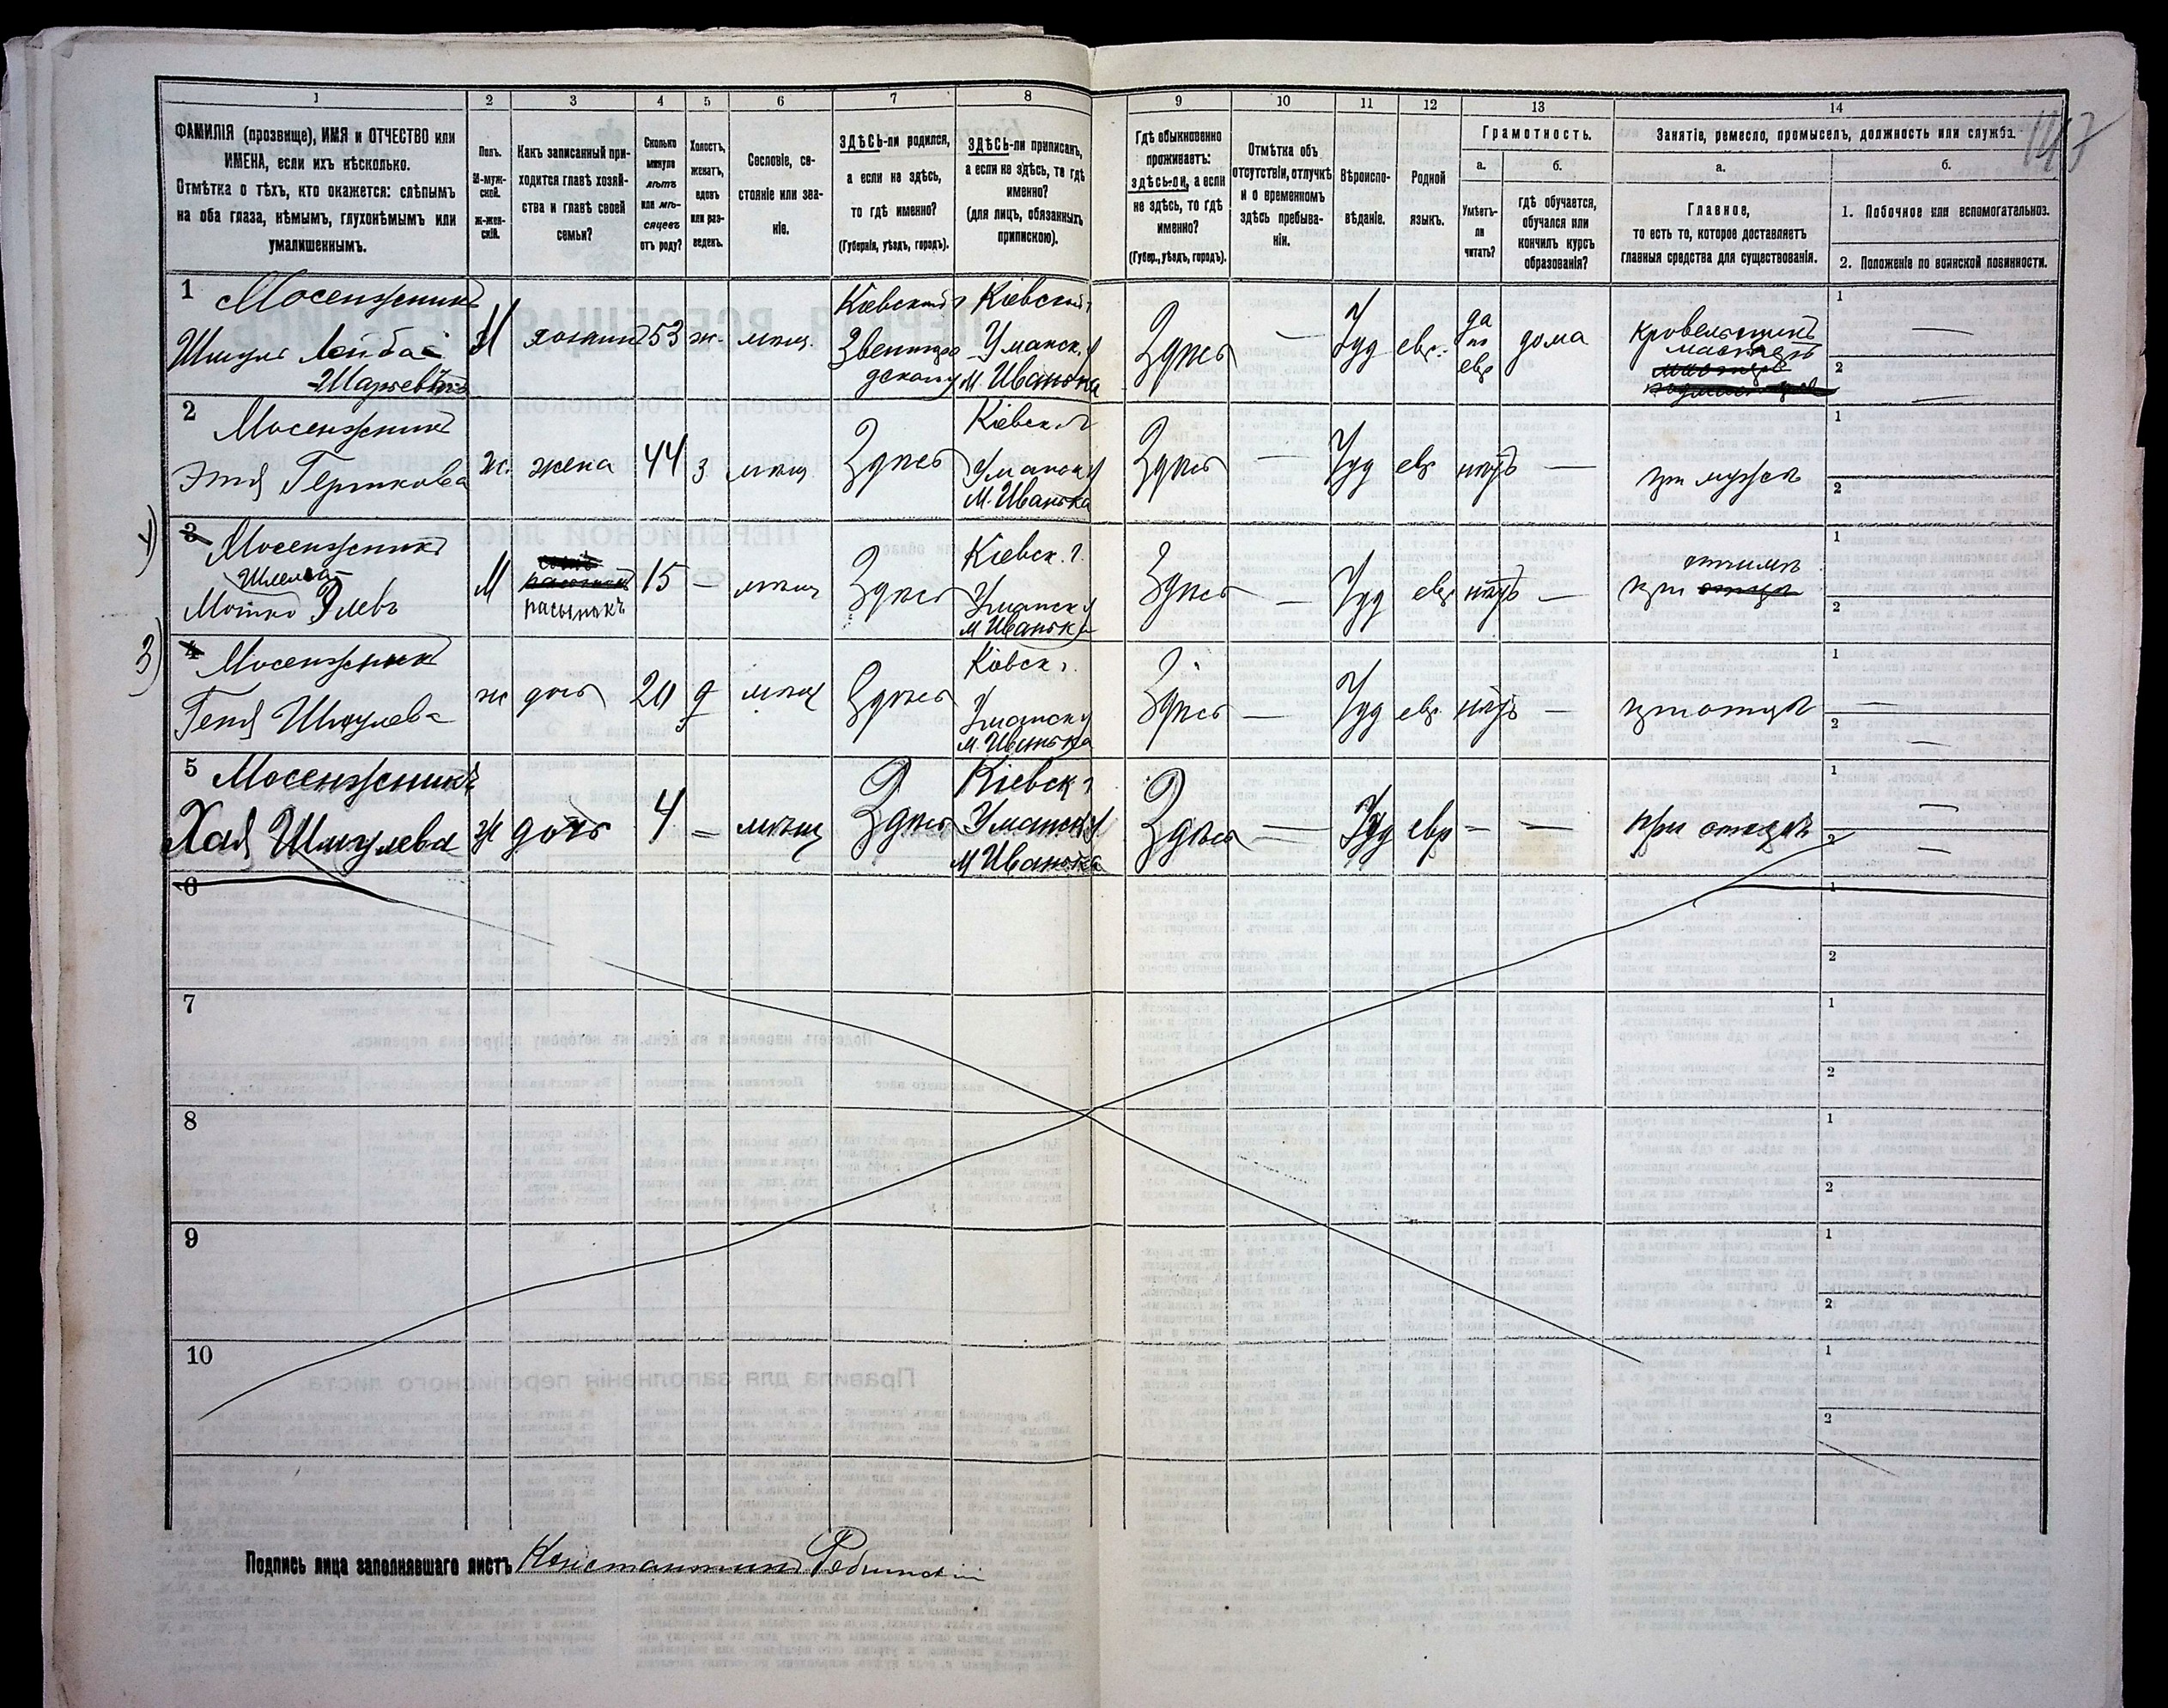 1 2 3 4 5 6 7 8 9 10 11 12 13 14
ФАМИЛІЯ (прозвище), ИМЯ и ОТЧЕСТВО или
ИМЕНА, если ихъ нѣсколько.
Отмѣтка о тѣхъ, кто окажется: слѣпымъ
на оба глаза, нѣмымъ, глухонѣмымъ или
умалишеннымъ.
Полъ.
М-муж-
ской.
ж-жен-
скій.
Какъ записанный при-
ходится главѣ хозяй-
ства и главѣ своей
семьи?
Сколько
минуло
лѣтъ
или мѣ-
сяцевъ
отъ роду?
Холостъ,
женатъ,
вдовъ
или раз-
веденъ.
Сословіе, со-
стояніе или зва-
ніе.
ЗДѢСЬ-ли родился,
а если не здѣсь,
то гдѣ именно?
(Губернія, уѣздъ, городъ).
ЗДѢСЬ-ли приписанъ,
а если не здѣсь, то гдѣ
именно?
(для лицъ, обязанныхъ
припискою).
Гдѣ обыкновенно
проживаетъ:
здѣсь-ли, а если
не здѣсь, то гдѣ
именно?
(Губер., уѣздъ, городъ).
Отмѣтка объ
отсутствіи, отлучкѣ
и о временномъ
здѣсь пребыва-
ніи.
Вѣроиспо-
вѣданіе.
Родной
языкъ.
Грамотность.
а.
Умѣетъ-
ли
читать?
б.
гдѣ обучается,
обучался или
кончилъ курсъ
образованія?
Занятіе, ремесло, промыселъ, должность или служба.
147
а.
Главное,
то есть то, которое доставляетъ
главныя средства для существованія.
б.
1. Побочное или вспомогательное.
2. Положеніе по воинской повинности.
1 Мосенжникъ
Шмуль Лейба
М хозяинъ 53 ж. мѣщ.
Кіевской г
Звенигоро
дскому
Кіевской г
Уманск. у
М. Иванька
Здѣсь — Іуд евр.
да
по
евр
дома
кровельщикъ
мастеръ
1 —
2 —
2 Мосенжникъ
Этя Гершкова
ж. жена 44 з мѣщ Здѣсь
Кіевск. г
Уманск у
М. Иванька
Здѣсь — Іуд евр нѣтъ —
при мужѣ
1
2
4) 3 Мосенжникъ
Шлемо
Мошко
М
пасынокъ
15 — мѣщ Здѣсь
Кіевск. г.
Уманск у
М Иванька
Здѣсь — Іуд евр нѣтъ —
отчимѣ
при отцѣ
1
2
3) 4 Мосенжникъ
Геня Шмулева
ж дочь 20 д мѣщ Здѣсь
Кіевск г.
Уманск у
М. Иванька
Здѣсь — Іуд евр. нѣтъ —
при отцѣ
1 —
2 —
5 Мосенжникъ
Хая Шмулева
ж дочь 4 — мѣщ Здѣсь
Кіевск г
Уманск у
М Иванька
Здѣсь — Іуд евр — —
при отцѣ
1 —
2
6 1
2
7 1
2
8 1
2
9 1
2
10 1
2
Подпись лица заполнявшаго листъ Константинъ